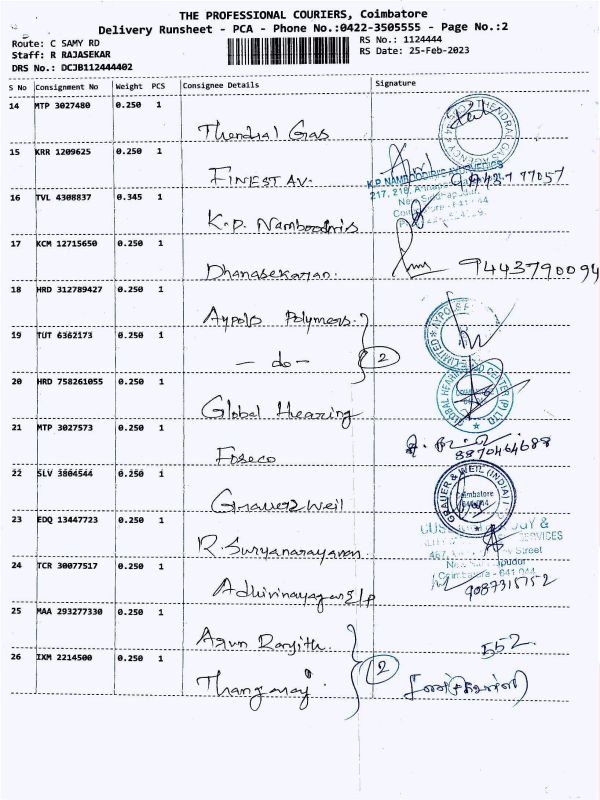 THE PROFESSIONAL COURIERS, Coimbatore
Delivery Runsheet - PCA - Phone No.:0422-3505555 - Page No.:2
Route: C SAMY RD
RS No.: 1124444
Staff: R RAJASEKAR
RS Date: 25-Feb-2023
DRS No.: DCJB112444402
S No Consignment No Weight PCS Consignee Details Signature
14 MTP 3027480 0.250 1
Thendral Gas
15 KRR 1209625 0.250 1
FINEST AV.
K.P. NAMBOODIRI'S AYURVEDICS
77057
217, 218,
16 TVL 4308837 0.345 1
K.P. Namboodris
17 KCM 12715650 0.250 1
Dhanasekaran.
9443790094
18 HRD 312789427 0.250 1
Aypols Polymers.
19 TUT 6362173 0.250 1
- do -
2
20 HRD 758261055 0.250 1
Global Hearing
21 MTP 3027573 0.250 1
Foseco
8870464688
22 SLV 3804544 0.250 1
GRAUER & WEIL (INDIA)
Coimbatore
Grauer & Weil
23 EDQ 13447723 0.250 1
R. Suryanarayanan
SERVICES
Street
24 TCR 30077517 0.250 1
Coimbatore - 641 044
9087315752
25 MAA 293277330 0.250 1
Arun Ranjith.
552.
26 IXM 2214500 0.250 1
Thangaraj.
2